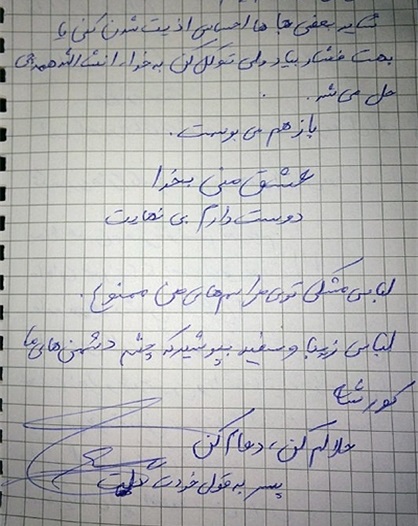 شاید بعضی جا ها احساس اذیت شدن کنی یا
بهت فشار بیاد ولی توکل کن به خدا. انشاالله همه چی
حل می شه.
باز هم می بوسمت.
عشق منی بخدا
دوست دارم بی نهایت
لباس مشکی توی مراسم های من ممنوع.
لباس زیبا و سفید بپوشید که چشم دشمن های ما
کور شه
حلالم کن، دعام کن
پسر به قول خودت